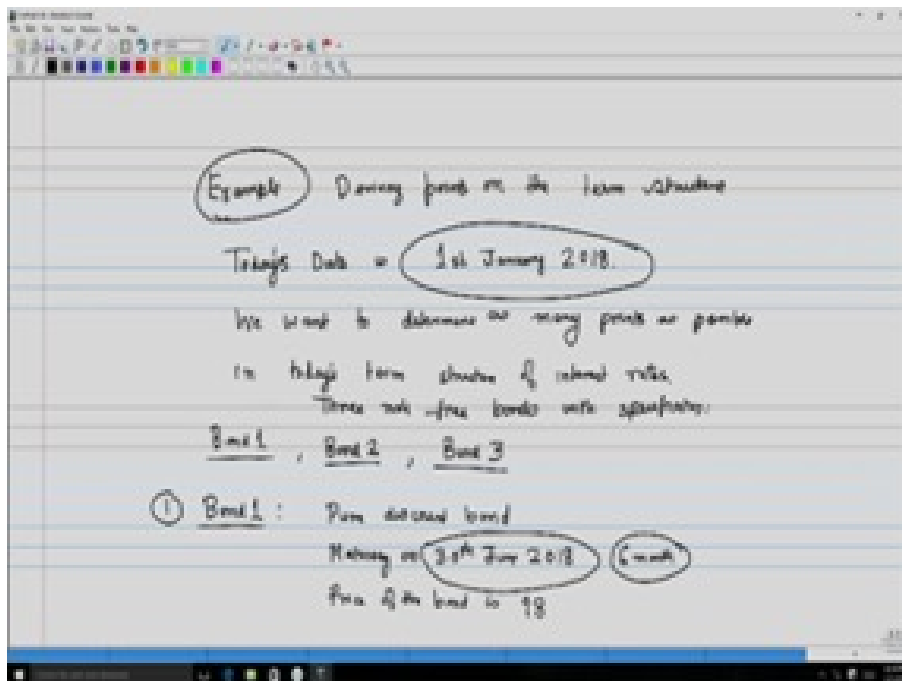 Example Deriving points on the term structure
Today's Date is 1st January 2018.
We want to determine as many points as possible
in today's term structure of interest rates.
Three risk-free bonds with specifications:
Bond 1, Bond 2, Bond 3
① Bond 1: Pure discount bond
Maturing on 30th June 2018 6 month
Price of the bond is 98